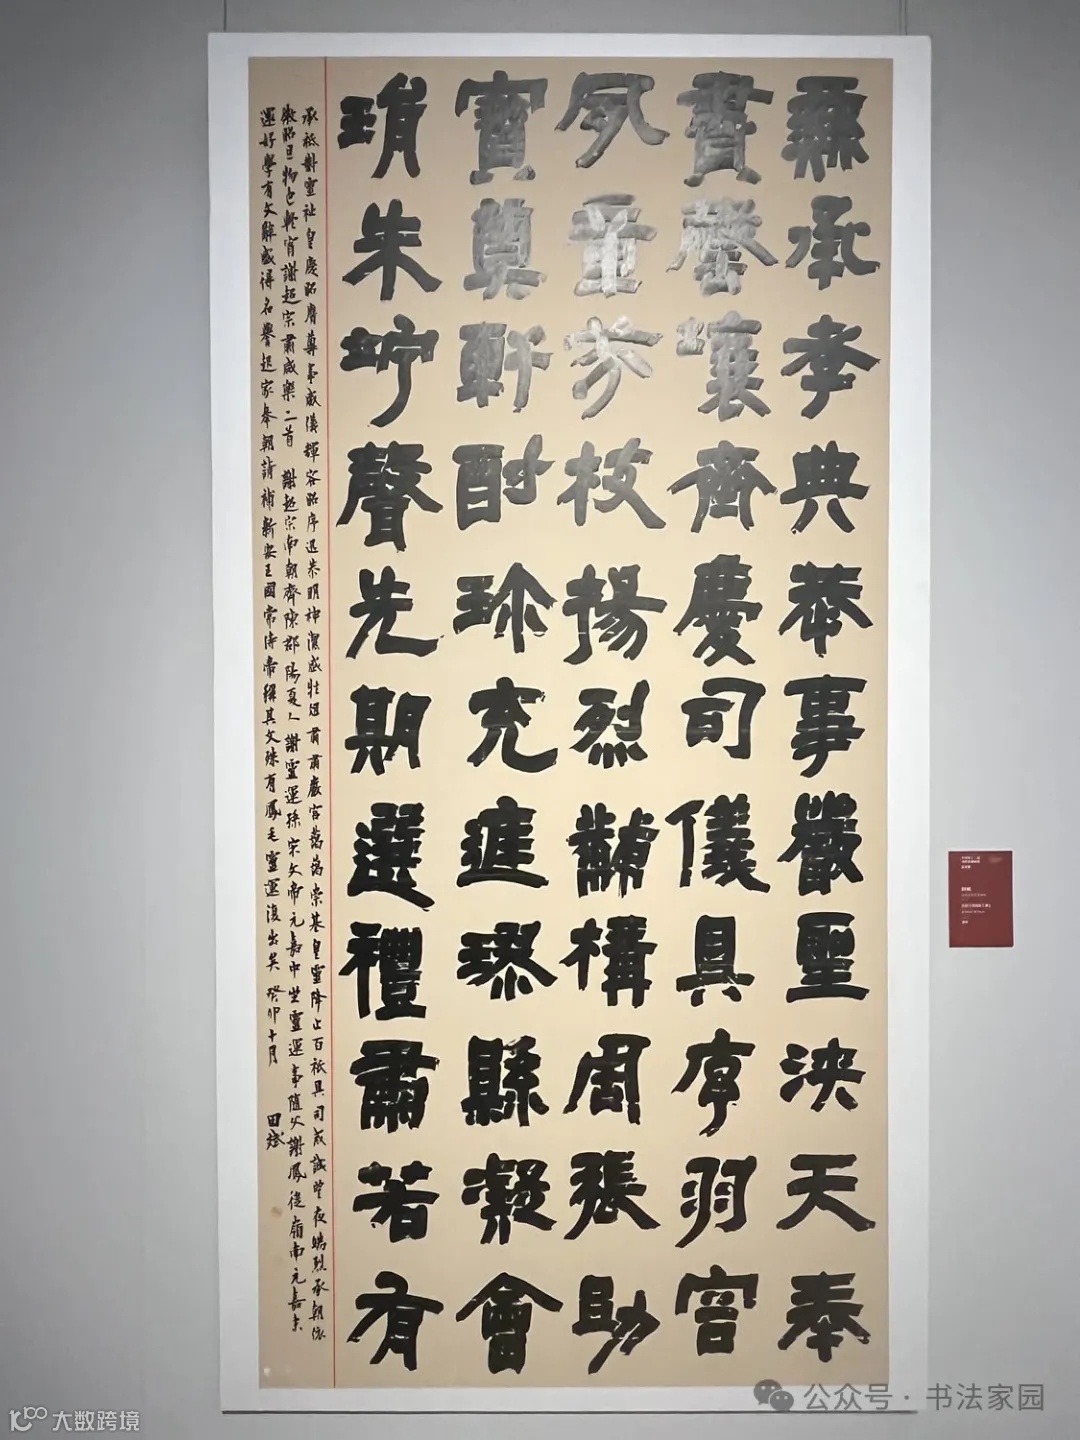 夤承孝典恭事嚴聖浹天奉
賮罄壤齊慶司儀具序羽容
夙章芬枝揚烈黼構周張助
寶奠軒酎珍充庭璆縣凝會
琄朱竚聲先期選禮肅若有
承祗對靈祉皇慶昭膺尊事威儀輝容昭序迅恭明神潔盛牲俎肅肅嚴宮藹藹崇基皇靈降止百祗具司戒誠望夜端烈承朝依
微昭旦物色輕宵謝超宗肅咸樂二首 謝超宗南朝齊陳郡陽夏人謝靈運孫宋文帝元嘉中坐靈運事隨父謝鳳從嶺南元嘉末
還好學有文辭盛得名譽起家奉朝請補新安王國常侍帝稱其文殊有鳳毛靈運復出矣 癸卯十月 田斌
公众号·书法家园
大数跨境